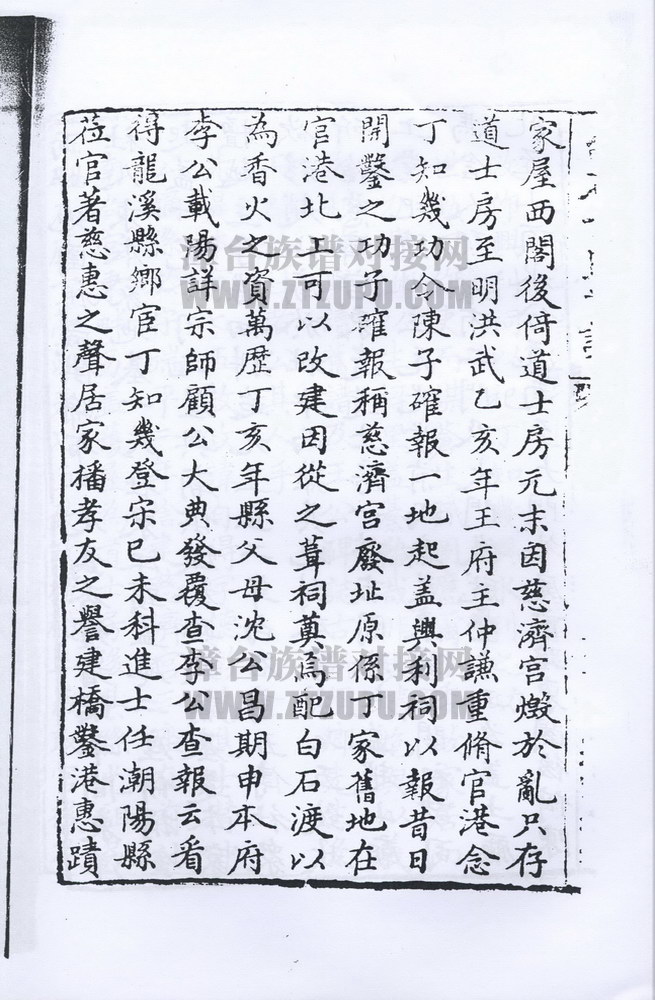 家屋西閣後倚道士房元末因慈濟宮燬於亂只存
道士房至明洪武乙亥年王府主仲謙重脩官港念
丁知幾功令陳子確報一地起盖興利祠以報昔日
開鑿之功子確報稱慈濟宮廢址原係丁家舊地在
官港北上可以改建因從之葺祠奠焉配白石渡以
為香火之資萬歷丁亥年縣父母沈公昌期申本府
李公載陽詳宗師顧公大典發覆查李公查報云看
得龍溪縣鄉宦丁知幾登宋巳未科進士任潮陽縣
蒞官著慈惠之聲居家播孝友之譽建橋鑿港惠蹟
漳台族谱对接网
WWW.ZTZUPU.COM
漳台族谱对接网
WWW.ZTZUPU.COM